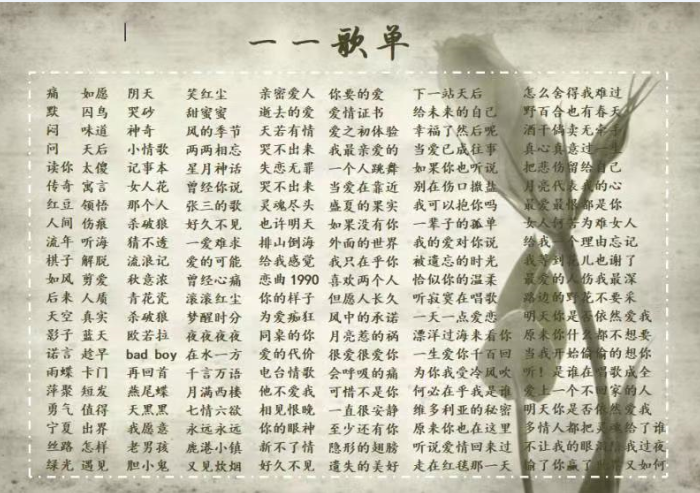 一一歌单
痛 如愿 阴天 笑红尘 亲密爱人 你要的爱 下一站天后 怎么舍得我难过
默 囚鸟 哭砂 甜蜜蜜 逝去的爱 爱情证书 给未来的自己 野百合也有春天
闷 味道 神奇 风的季节 天若有情 爱之初体验 幸福了然后呢 酒干倘卖无
问 天后 小情歌 两两相忘 哭不出来 我最亲爱的 当爱已成往事 真心真意过一生
读你 太傻 记事本 星月神话 失恋无罪 一个人跳舞 如果你也听说 把悲伤留给自己
传奇 寓言 女人花 曾经你说 哭不出来 当爱在靠近 别在伤口撒盐 月亮代表我的心
红豆 领悟 那个人 张三的歌 灵魂尽头 盛夏的果实 我可以抱你吗 最爱最恨都是你
人间 伤痕 杀破狼 好久不见 也许明天 如果没有你 一辈子的孤单 女人何苦为难女人
流年 听海 猜不透 一爱难求 排山倒海 外面的世界 我的爱对你说 给我一个理由忘记
棋子 解脱 流浪记 爱的可能 给我感觉 我只在乎你 被遗忘的时光 我等到花儿也谢了
如风 剪爱 秋意浓 曾经心痛 恋曲1990 喜欢两个人 恰似你的温柔 最爱的人伤我最深
后来 人质 青花瓷 滚滚红尘 你的样子 但愿人长久 听寂寞在唱歌 路边的野花不要采
天空 真实 杀破狼 梦醒时分 为爱痴狂 风中的承诺 一天一点爱恋 明天你是否依然爱我
影子 蓝天 欧若拉 夜夜夜夜 同桌的你 月亮惹的祸 漂洋过海来看你 原来你什么都不想要
诺言 趁早 bad boy 在水一方 爱的代价 很爱很爱你 一生爱你千百回 当我开始偷偷的想你
雨蝶 卡门 再回首 千言万语 电台情歌 会呼吸的痛 为你我受冷风吹 听！是谁在唱歌
萍聚 短发 燕尾蝶 月满西楼 他不爱我 可惜不是你 何必在乎我是谁 爱上一个不回家的人
勇气 值得 天黑黑 七情六欲 相见恨晚 一直很安静 维多利亚的秘密 明天你是否依然爱我
宁夏 出界 我愿意 永远永远 你的眼神 至少还有你 原来你也在这里 多情人都把灵魂给了谁
丝路 怎样 老男孩 鹿港小镇 新不了情 隐形的翅膀 听说爱情回来过 不让我的眼泪陪我过夜
绿光 遇见 胆小鬼 又见炊烟 好久不见 遗失的美好 走在红毯那一天 输了你赢了世界又如何